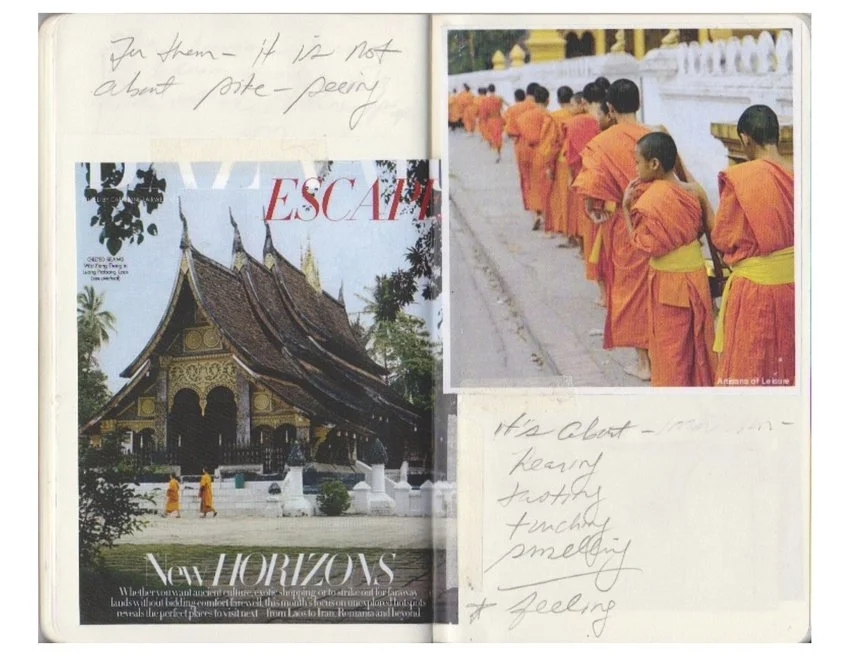 For them – it is not
about site-seeing
ESCAPE
GILDED BEAMS
Wat Xieng Thong in
Luang Prabang, Laos
(see overleaf)
New HORIZONS
Whether you want ancient culture, exotic shopping or to strike out for faraway
lands without bidding comfort farewell, this month's focus on unexplored hotspots
reveals the perfect places to visit next – from Laos to Iran, Romania and beyond
Artisans of Leisure
it's about –
hearing
tasting
touching
smelling
* feeling